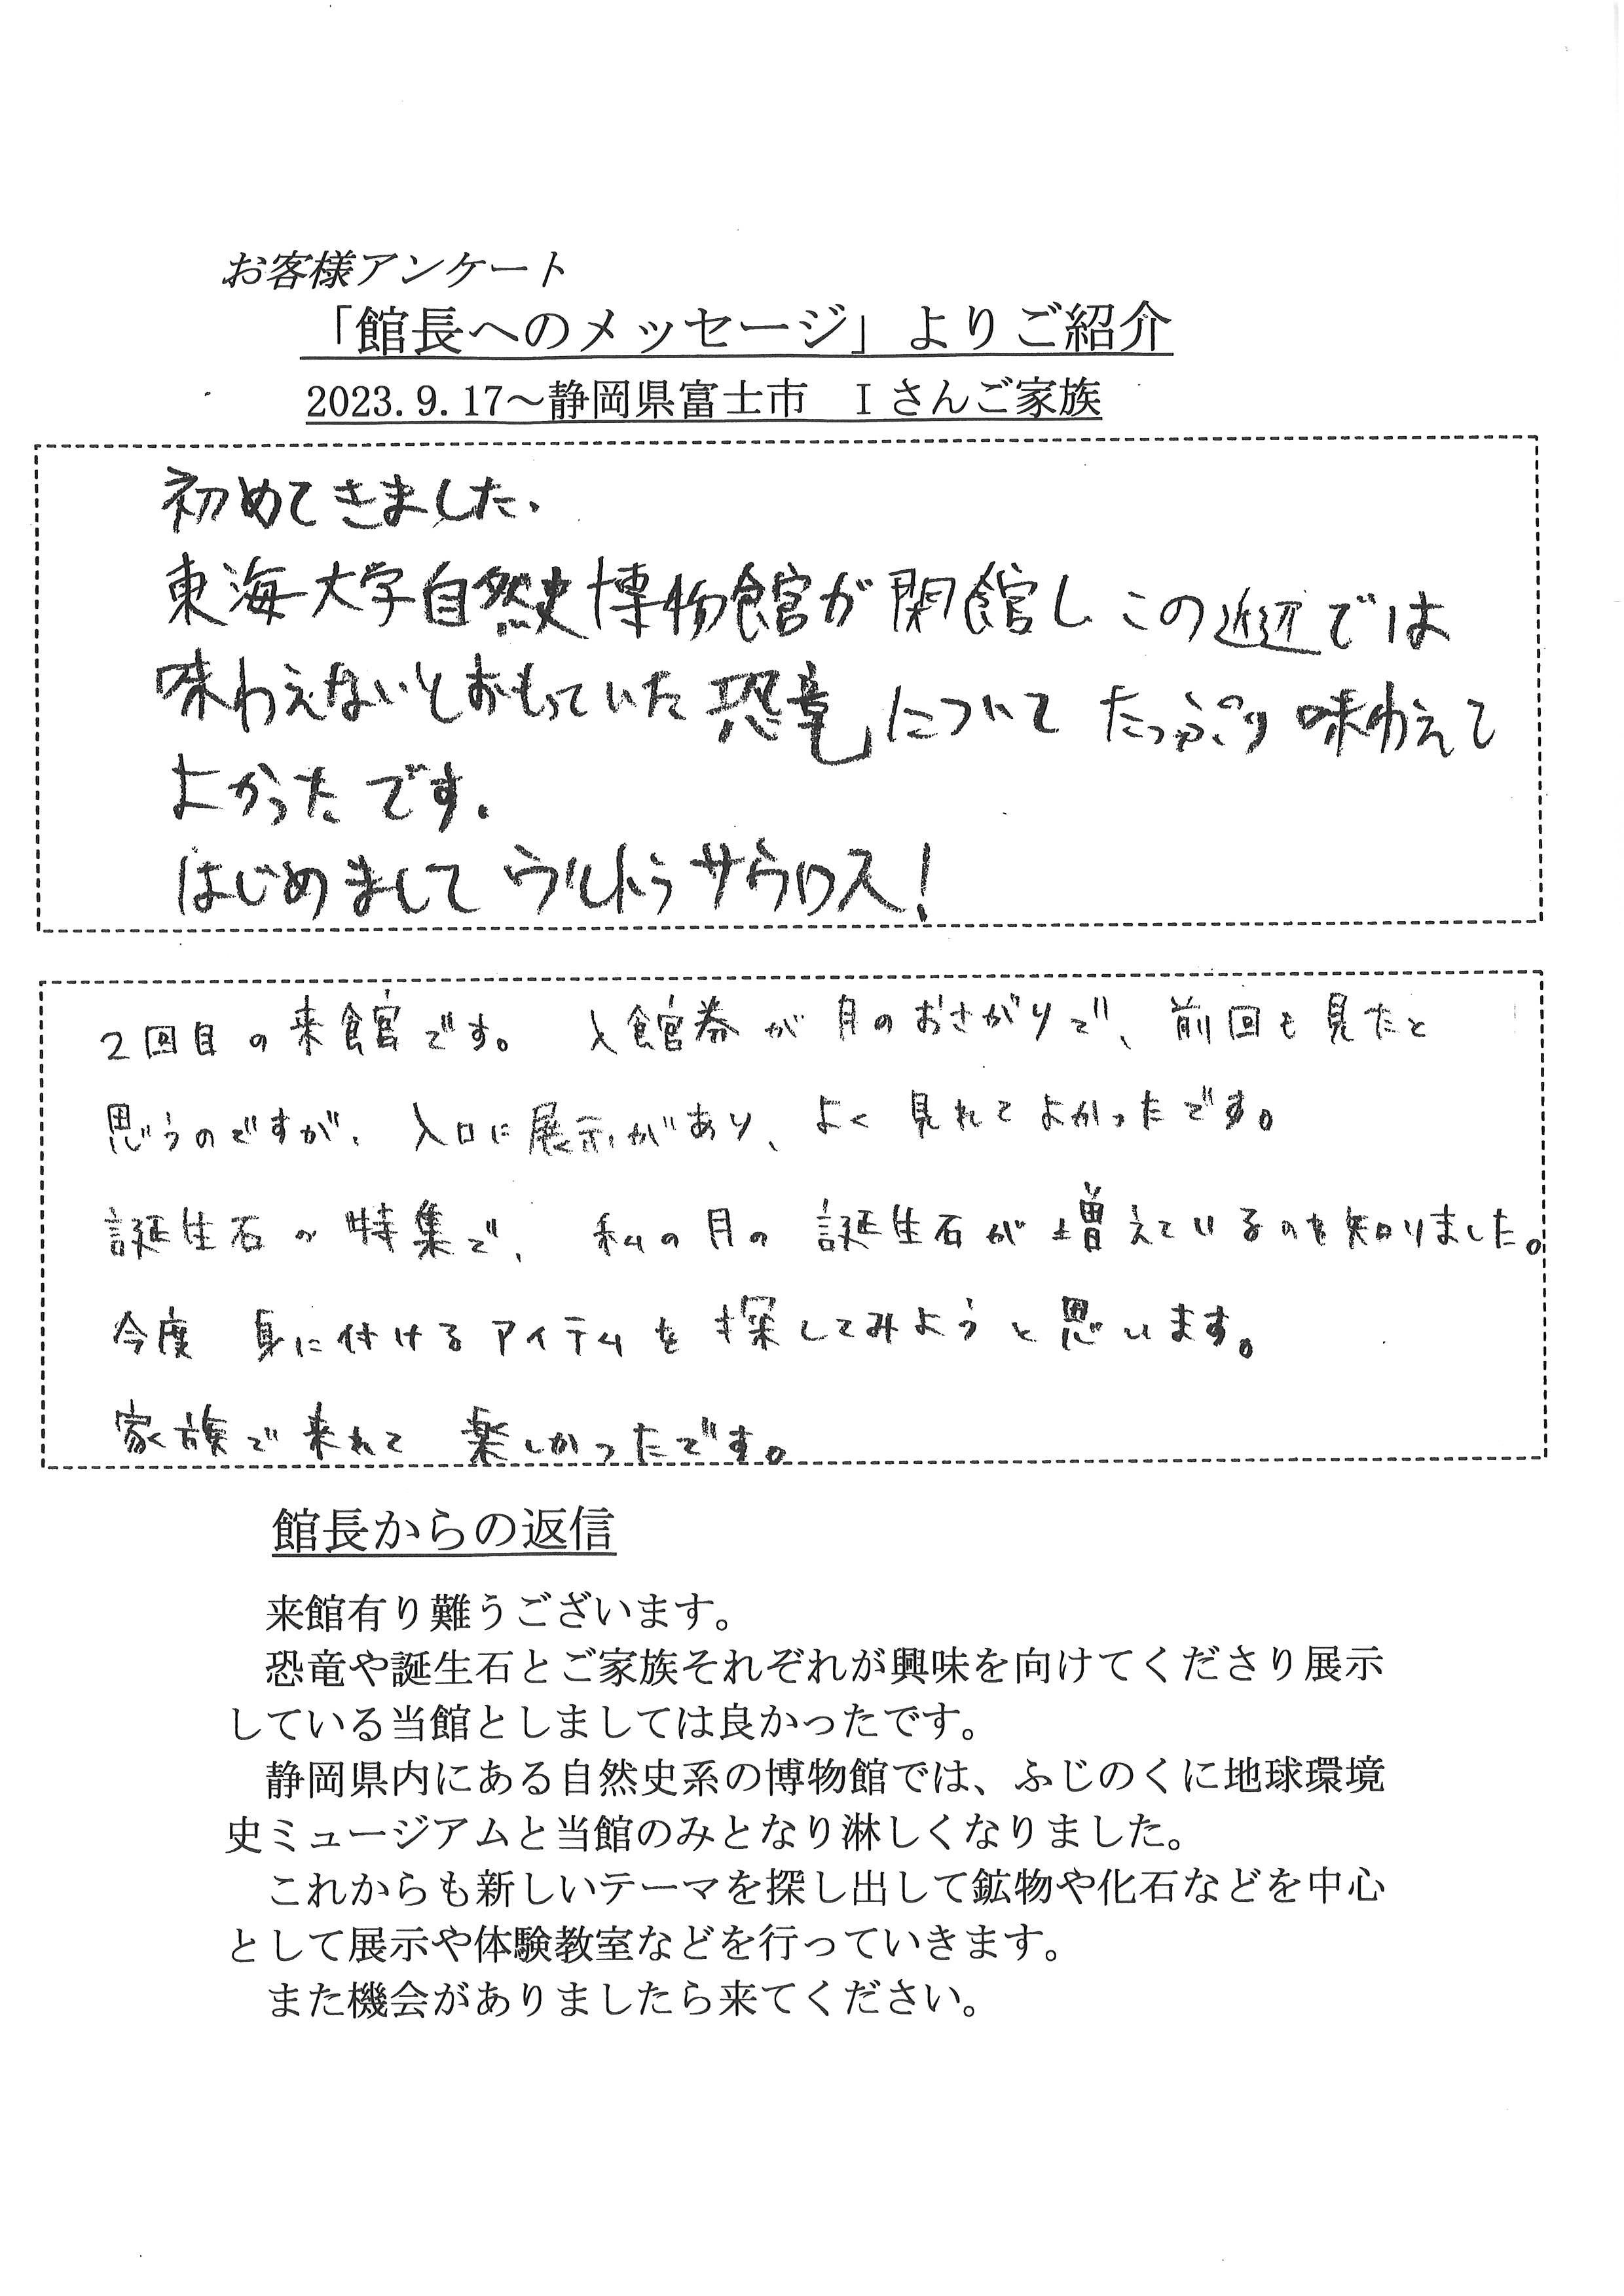 お客様アンケート
「館長へのメッセージ」よりご紹介
2023.9.17～静岡県富士市　Iさんご家族
初めてきました.
東海大学自然史博物館が閉館し この近辺では
味わえないとおもっていた恐竜について たっぷり味わえて
よかったです.
はじめまして ウルトラサウロス!
2回目の来館です。 入館券が月のおさがりで、前回も見たと
思うのですが、入口に展示があり、よく見れてよかったです。
誕生石の特集で、私の月の誕生石が増えているのを知りました。
今度 身に付けるアイテムを探してみようと思います。
家族で来れて 楽しかったです。
館長からの返信
来館有り難うございます。
恐竜や誕生石とご家族それぞれが興味を向けてくださり展示
している当館としましては良かったです。
静岡県内にある自然史系の博物館では、ふじのくに地球環境
史ミュージアムと当館のみとなり淋しくなりました。
これからも新しいテーマを探し出して鉱物や化石などを中心
として展示や体験教室などを行っていきます。
また機会がありましたら来てください。